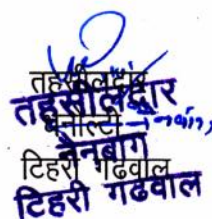 तहसीलदार
तहसीलदार
धनौल्टी
नैनबाग
टिहरी गढवाल
टिहरी गढवाल